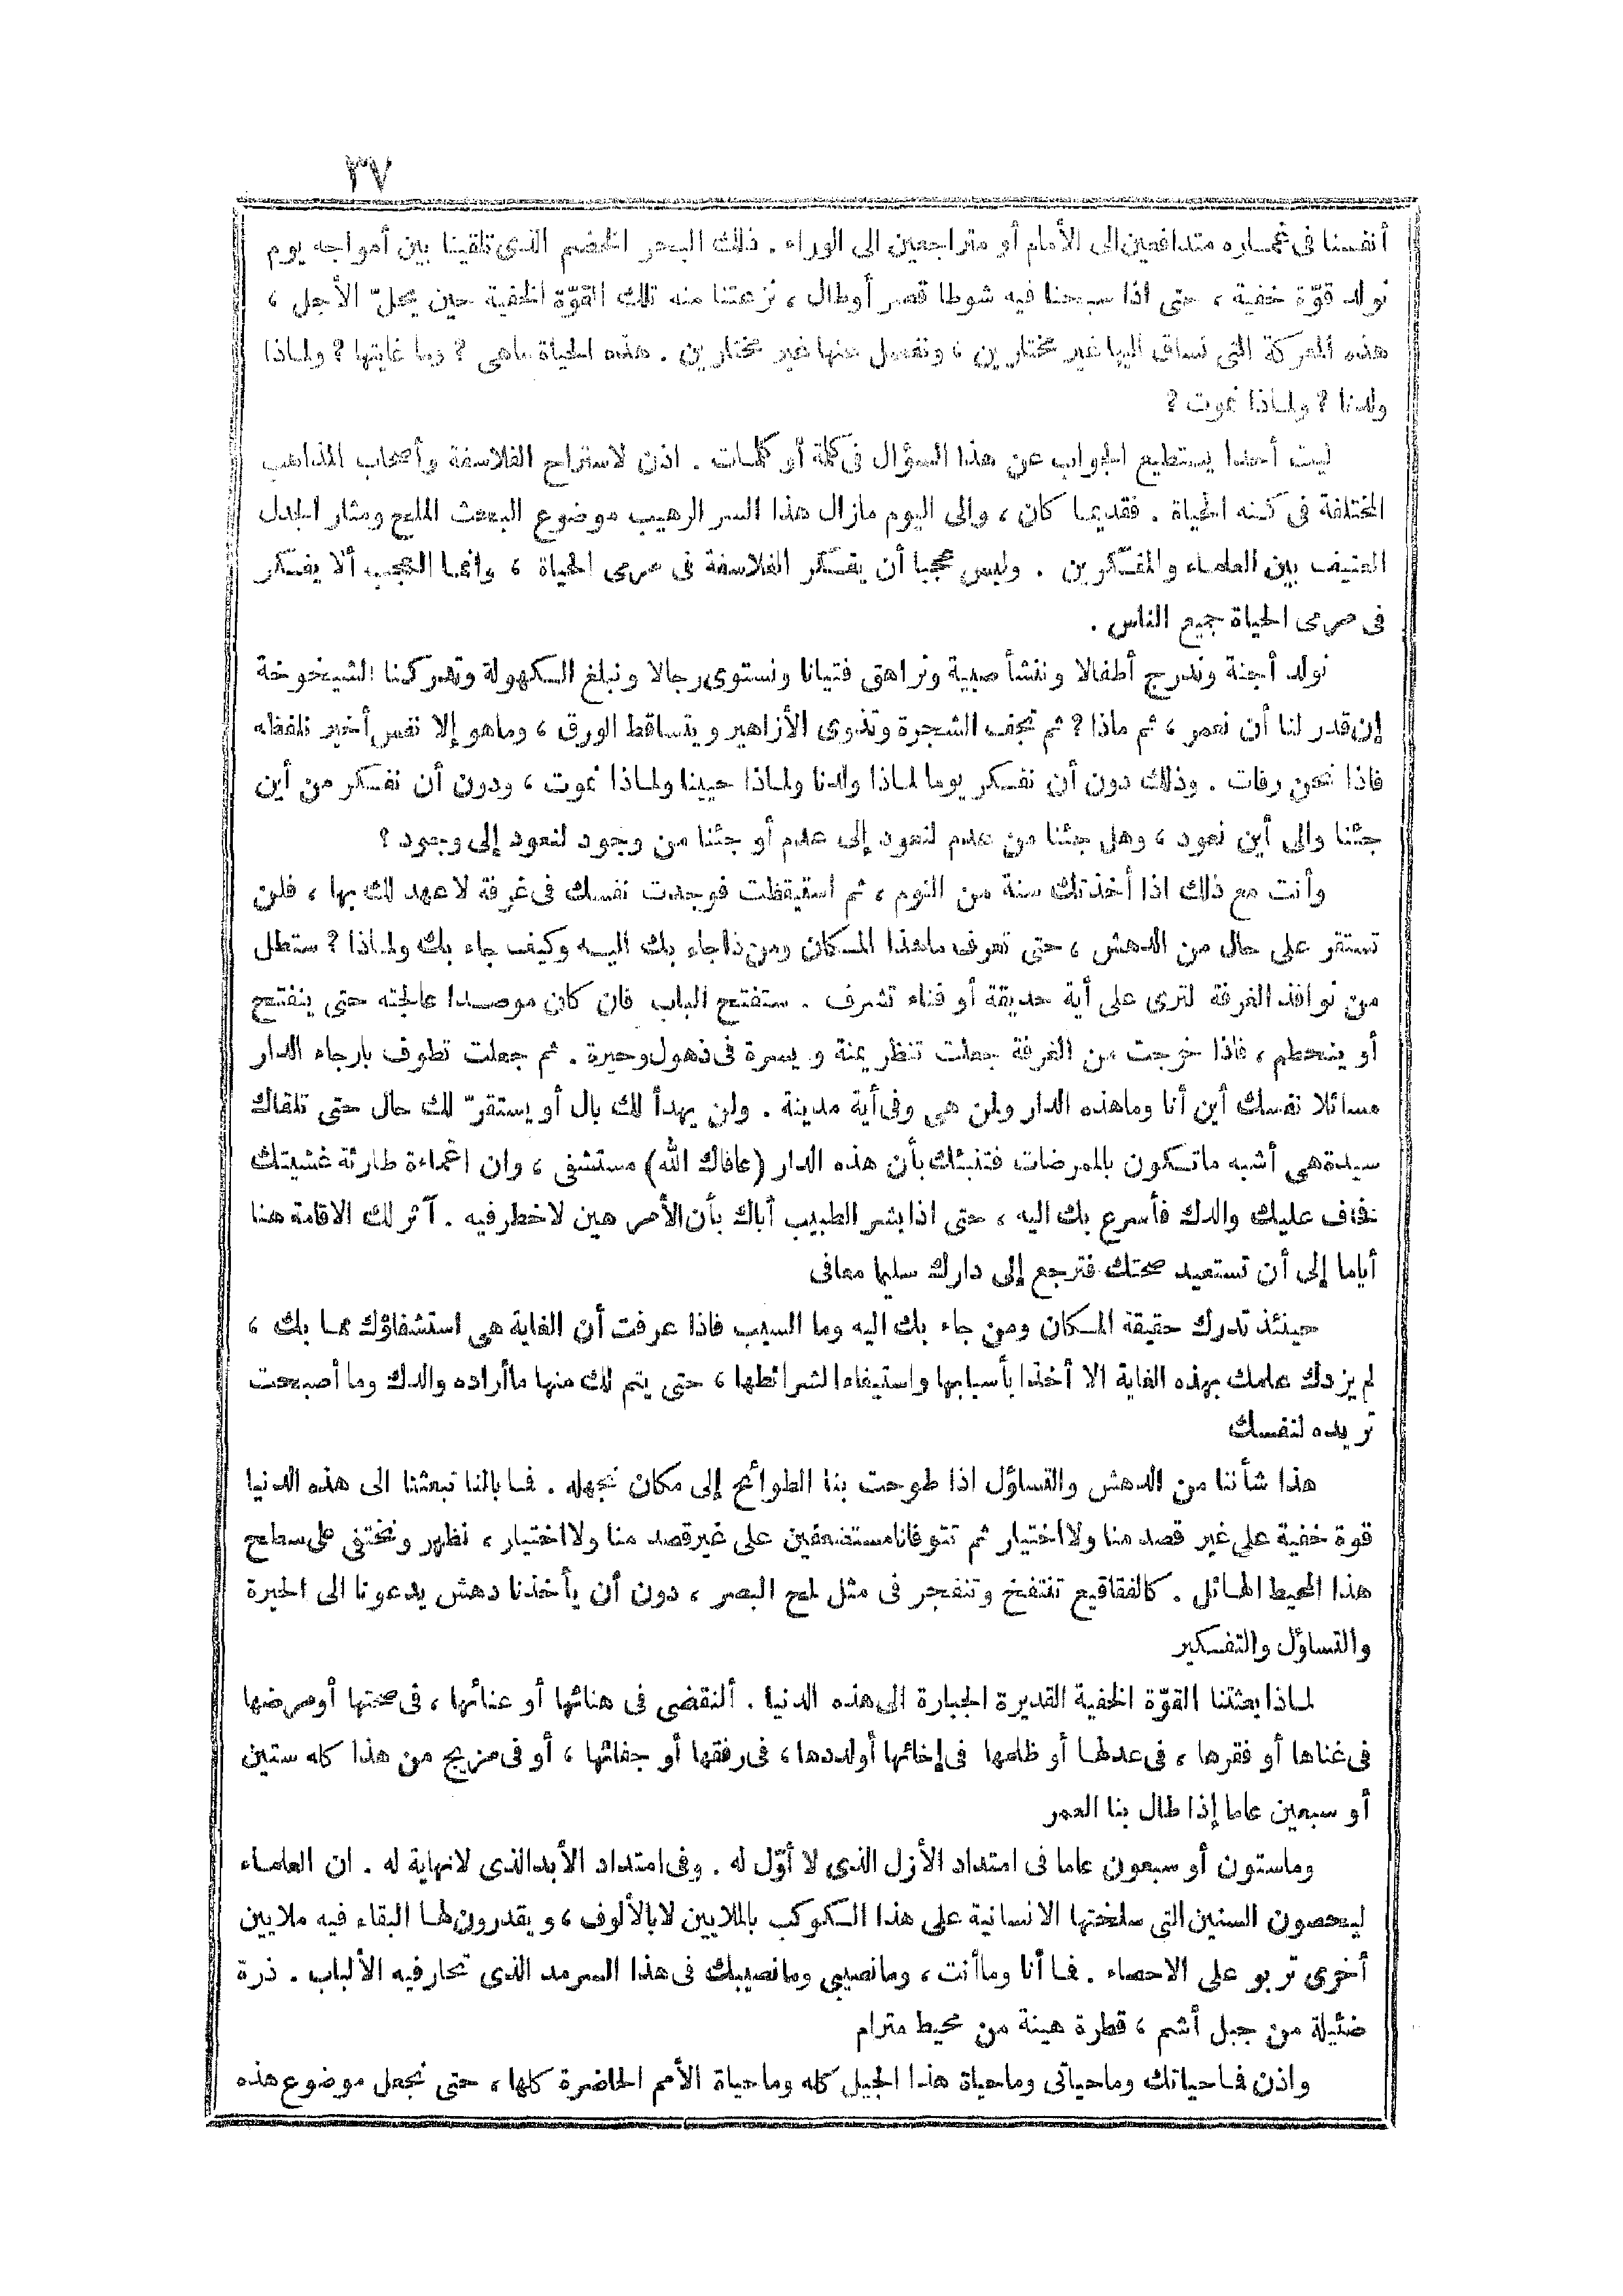 ٣٧
أنفسنا فى غماره متدافعين الى الأمام أو متراجعين الى الوراء . ذلك البحر الخضم الذى تلقينا بين أمواجه يوم
نولد قوّة خفية ، حتى اذا سبحنا فيه شوطا قصر أو طال ، نزعتنا منه تلك القوّة الخفية حين يحلّ الأجل ،
هذه المعركة التى نساق اليها غير مختارين ، ونفصل عنها غير مختارين . هذه الحياة ماهى ? وما غايتها ? ولماذا
ولدنا ? ولماذا نموت ?
ليت أحدا يستطيع الجواب عن هذا السؤال فى كلمة أو كلمات . اذن لاستراح الفلاسفة وأصحاب المذاهب
المختلفة فى كنه الحياة . فقديما كان ، والى اليوم مازال هذا السر الرهيب موضوع البحث الملح ومثار الجدل
العنيف بين العلماء والمفكرين . وليس عجبا أن يفكر الفلاسفة فى مرمى الحياة ، وانما العجب ألا يفكر
فى مرمى الحياة جميع الناس .
نولد أجنة وندرج أطفالا وننشأ صبية ونراهق فتيانا ونستوى رجالا ونبلغ الكهولة وتدركنا الشيخوخة
إن قدر لنا أن نعمر ، ثم ماذا ? ثم تجف الشجرة وتذوى الأزاهير ويتساقط الورق ، وماهو إلا نفس أخير نلفظه
فاذا نحن رفات . وذلك دون أن نفكر يوما لماذا ولدنا ولماذا حيينا ولماذا نموت ، ودون أن نفكر من أين
جئنا والى أين نعود ، وهل جئنا من عدم لنعود إلى عدم أو جئنا من وجود لنعود إلى وجود ?
وأنت مع ذلك اذا أخذتك سنة من النوم ، ثم استيقظت فوجدت نفسك فى غرفة لاعهد لك بها ، فلن
تستقر على حال من الدهش ، حتى تعرف ماهذا المكان ومن ذا جاء بك اليه وكيف جاء بك ولماذا ? ستطل
من نوافذ الغرفة لترى على أية حديقة أو فناء تشرف . ستفتح الباب فان كان موصدا عالجته حتى ينفتح
أو ينحطم ، فاذا خرجت من الغرفة جعلت تنظر يمنة ويسرة فى ذهول وحيرة . ثم جعلت تطوف بارجاء الدار
مسائلا نفسك أين أنا وماهذه الدار ولمن هى وفى أية مدينة . ولن يهدأ لك بال أو يستقرّ لك حال حتى تلقاك
سيدة هى أشبه ماتكون بالممرضات فتنبئك بأن هذه الدار (عافاك الله) مستشفى ، وان اغماءة طارئة غشيتك
نخاف عليك والدك فأسرع بك اليه ، حتى اذا بشر الطبيب أباك بأن الأمر هين لاخطر فيه . آثر لك الاقامة هنا
أياما إلى أن تستعيد صحتك فترجع إلى دارك سليما معافى
حينئذ تدرك حقيقة المكان ومن جاء بك اليه وما السبب فاذا عرفت أن الغاية هى استشفاؤك مما بك ،
لم يزدك علمك بهذه الغاية الا أخذا بأسبابها واستيفاء لشرائطها ، حتى يتم لك منها ماأراده والدك وما أصبحت
تريده لنفسك
هذا شأننا من الدهش والتساؤل اذا طوحت بنا الطوائح إلى مكان نجهله . فما بالنا تبعثنا الى هذه الدنيا
قوة خفية على غير قصد منا ولا اختيار ثم تتوفانا مستضعفين على غير قصد منا ولا اختيار ، نظهر ونختفى على سطح
هذا المحيط الهائل . كالفقاقيع تنتفخ وتنفجر فى مثل لمح البصر ، دون أن يأخذنا دهش يدعونا الى الحيرة
والتساؤل والتفكير
لماذا بعثتنا القوّة الخفية القديرة الجبارة الى هذه الدنيا . ألنقضى فى هنائها أو عنائها ، فى صحتها أو مرضها
فى غناها أو فقرها ، فى عدلها أو ظلمها فى إخائها أولددها ، فى رفقها أو جفائها ، أو فى مزيج من هذا كله ستين
أو سبعين عاما إذا طال بنا العمر
وماستون أو سبعون عاما فى امتداد الأزل الذى لا أوّل له . وفى امتداد الأبد الذى لانهاية له . ان العلماء
ليحصون السنين التى سلختها الانسانية على هذا الكوكب بالملايين لابالألوف ، ويقدرون لها البقاء فيه ملايين
أخرى تربو على الاحصاء . فما أنا وماأنت ، ومانصيبى ومانصيبك فى هذا السرمد الذى تحار فيه الألباب . ذرة
ضئيلة من جبل أشم ، قطرة هينة من محيط مترام
واذن فما حياتك وماحياتى وماحياة هذا الجيل كله وما حياة الأمم الحاضرة كلها ، حتى نجعل موضوع هذه